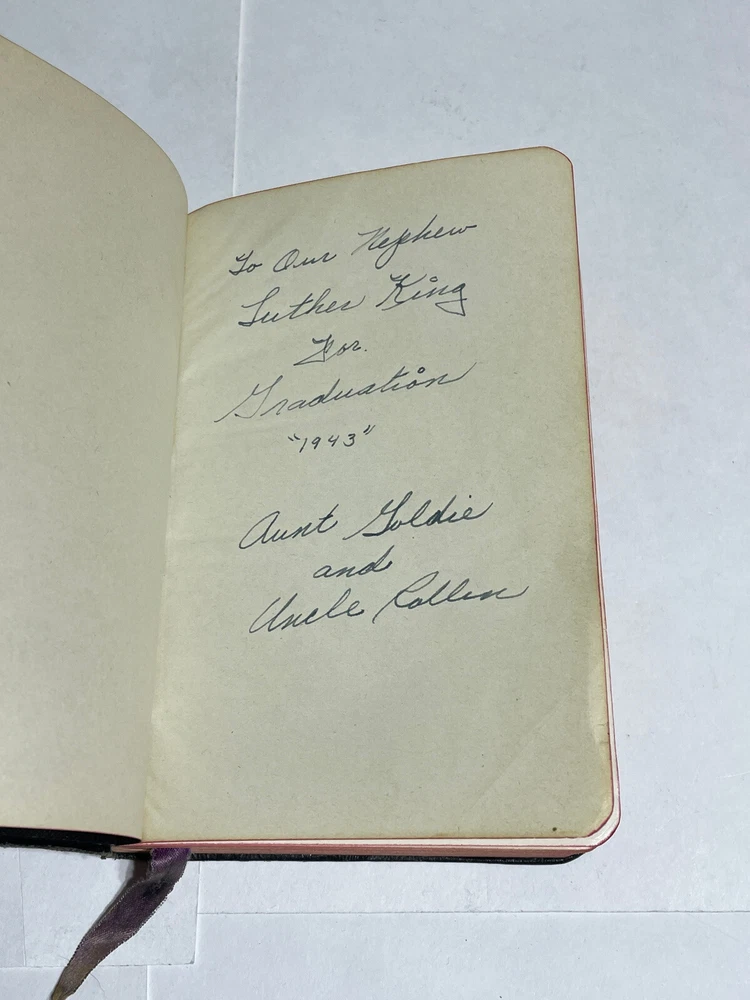 To Our Nephew
Luther King
For.
Graduation
"1943"
Aunt Goldie
and
Uncle Rollin